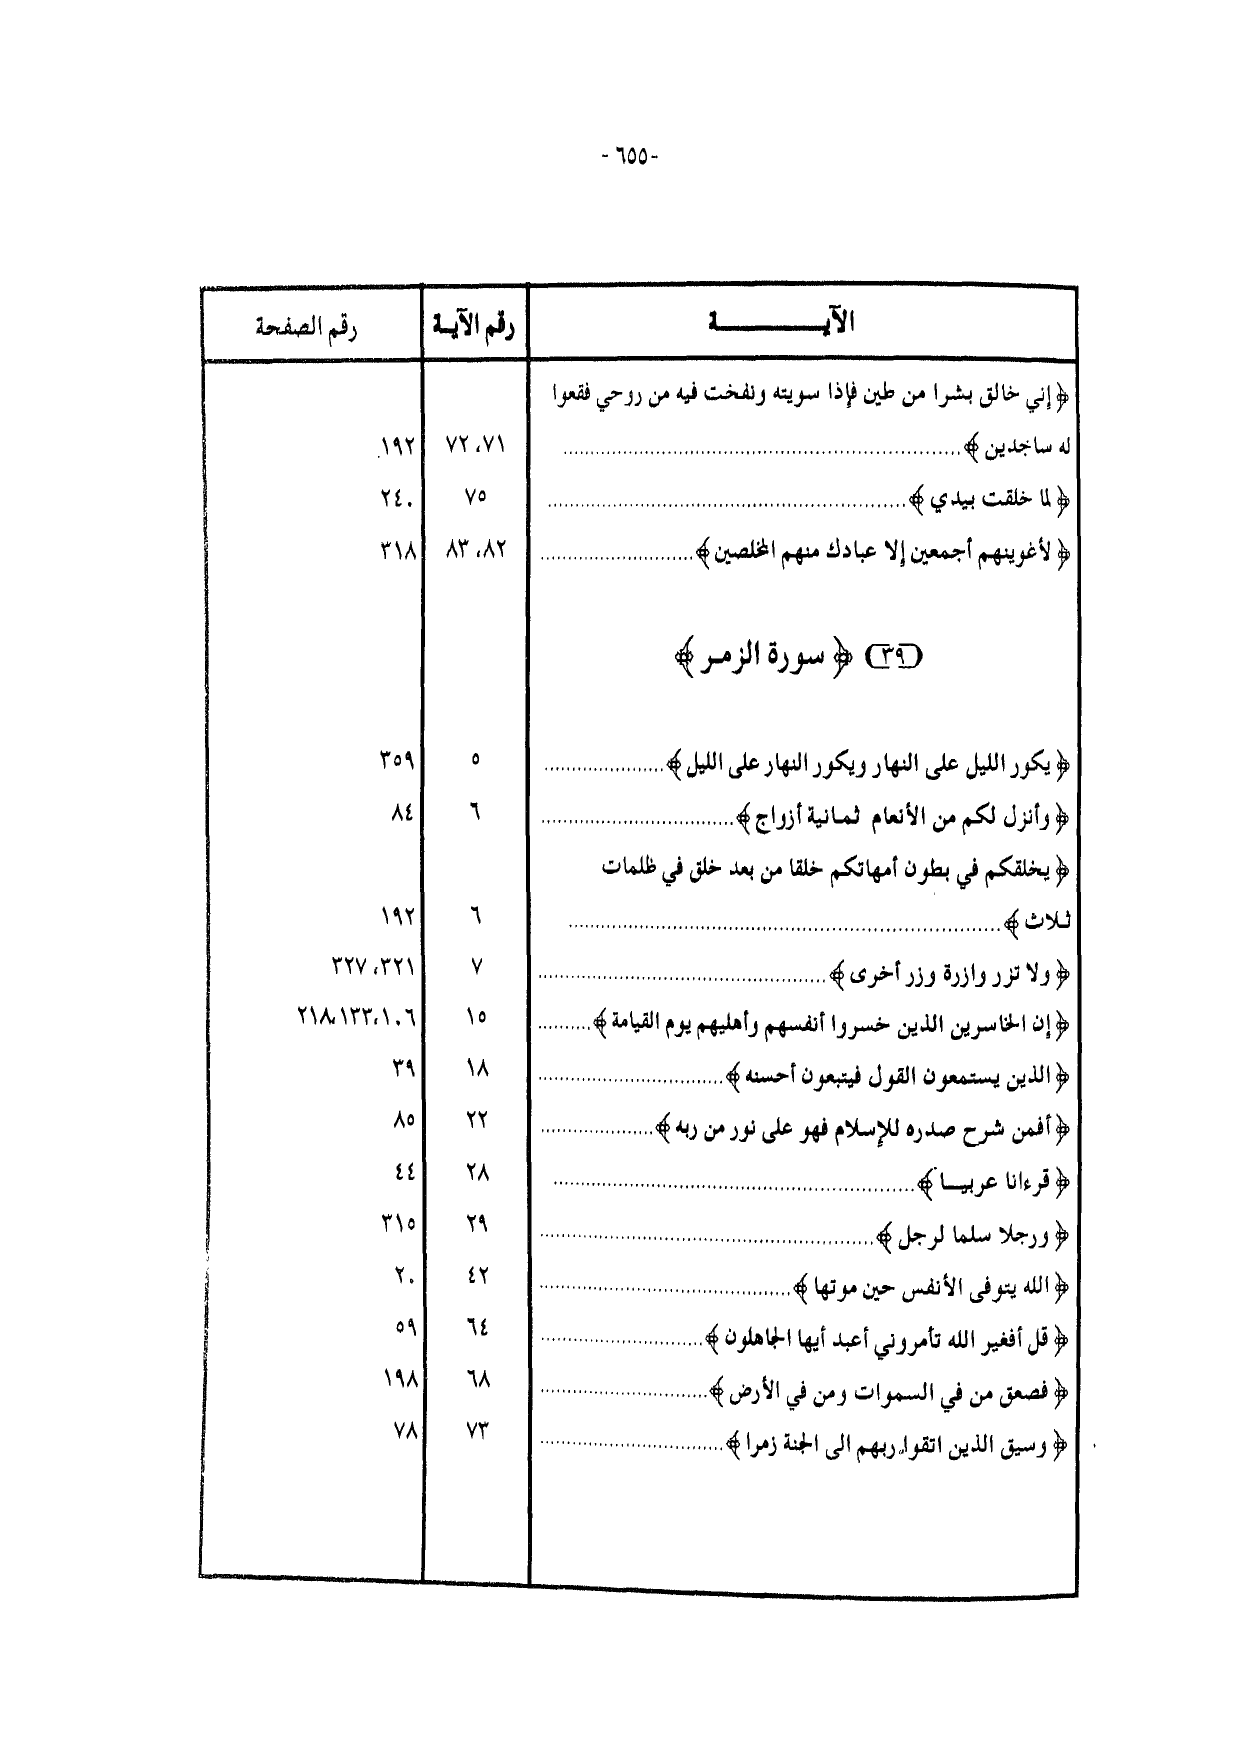 - ٦٥٥ -
الآيـــــــــة رقم الآيـة رقم الصفحة
﴿ إني خالق بشرا من طين فإذا سويته ونفخت فيه من روحي فقعوا
له ساجدين ﴾ ........ ٧١، ٧٢ ١٩٢
﴿ لما خلقت بيدي ﴾ ........ ٧٥ ٢٤٠
﴿ لأغوينهم أجمعين إلا عبادك منهم المخلصين ﴾ ........ ٨٢، ٨٣ ٣١٨
(٣٩) ﴿ سورة الزمـر ﴾
﴿ يكور الليل على النهار ويكور النهار على الليل ﴾ ........ ٥ ٣٥٩
﴿ وأنزل لكم من الأنعام ثمـانية أزواج ﴾ ........ ٦ ٨٤
﴿ يخلقكم في بطون أمهاتكم خلقا من بعد خلق في ظلمات
ثـلاث ﴾ ........ ٦ ١٩٢
﴿ ولا تزر وازرة وزر أخرى ﴾ ........ ٧ ٣٢١، ٣٢٧
﴿ إن الخاسرين الذين خسروا أنفسهم وأهليهم يوم القيامة ﴾ ........ ١٥ ١٠٦، ١٣٣، ٢١٨
﴿ الذين يستمعون القول فيتبعون أحسنه ﴾ ........ ١٨ ٣٩
﴿ أفمن شرح صدره للإسلام فهو على نور من ربه ﴾ ........ ٢٢ ٨٥
﴿ قرءانا عربيـا ﴾ ........ ٢٨ ٤٤
﴿ ورجلا سلما لرجل ﴾ ........ ٢٩ ٣١٥
﴿ الله يتوفى الأنفس حين موتها ﴾ ........ ٤٢ ٢٠
﴿ قل أفغير الله تأمروني أعبد أيها الجاهلون ﴾ ........ ٦٤ ٥٩
﴿ فصعق من في السموات ومن في الأرض ﴾ ........ ٦٨ ١٩٨
﴿ وسيق الذين اتقوا ربهم الى الجنة زمرا ﴾ ........ ٧٣ ٧٨